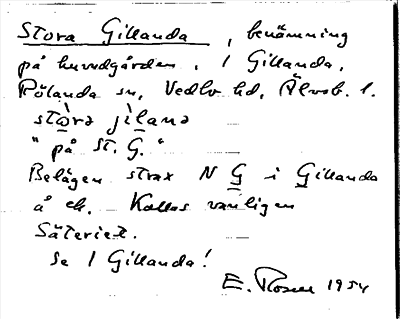 Stora Gillanda, benämning
på huvudgården i 1 Gillanda,
Rölanda sn, Vedbo hd, Älvsb. l.
stòrạ jịlạna
"på St. G."
Belägen strax N G i Gillanda
å ek. Kallas vanligen
Säteriet.
Se 1 Gillanda!
E. Rosen 1954